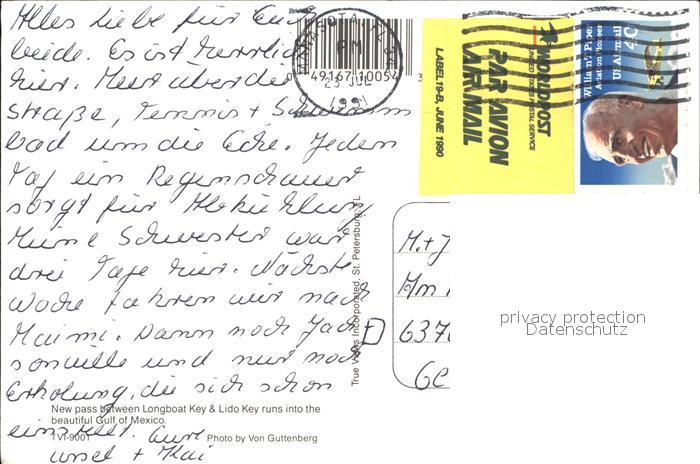 Alles Liebe für Euch
beide. Es ist herrlich
hier. Meer über der
Straße, Tennis + Schwimm
bad um die Ecke. Jeden
Tag ein Regenschauer
sorgt für Abkühlung.
Meine Schwester war
drei Tage hier. Nächste
Woche fahren wir nach
Maimi. Dann noch Jack
sonville und nur noch
Erholung, die sich schon
einstellt. Eure
Ursel + Kai
New pass between Longboat Key & Lido Key runs into the
beautiful Gulf of Mexico.
TVI-9001
Photo by Von Guttenberg
True Views Incorporated, St. Petersburg, FL
SARASOTA, FL
PM
25 JUL
1991
0 49167 10054 3
WORLDPOST
UNITED STATES POSTAL SERVICE
PAR AVION
AIR MAIL
LABEL 19-B, JUNE 1990
William T. Piper
Aviation Pioneer
US Airmail
40
M. + J
D 637
Ge
privacy protection
Datenschutz